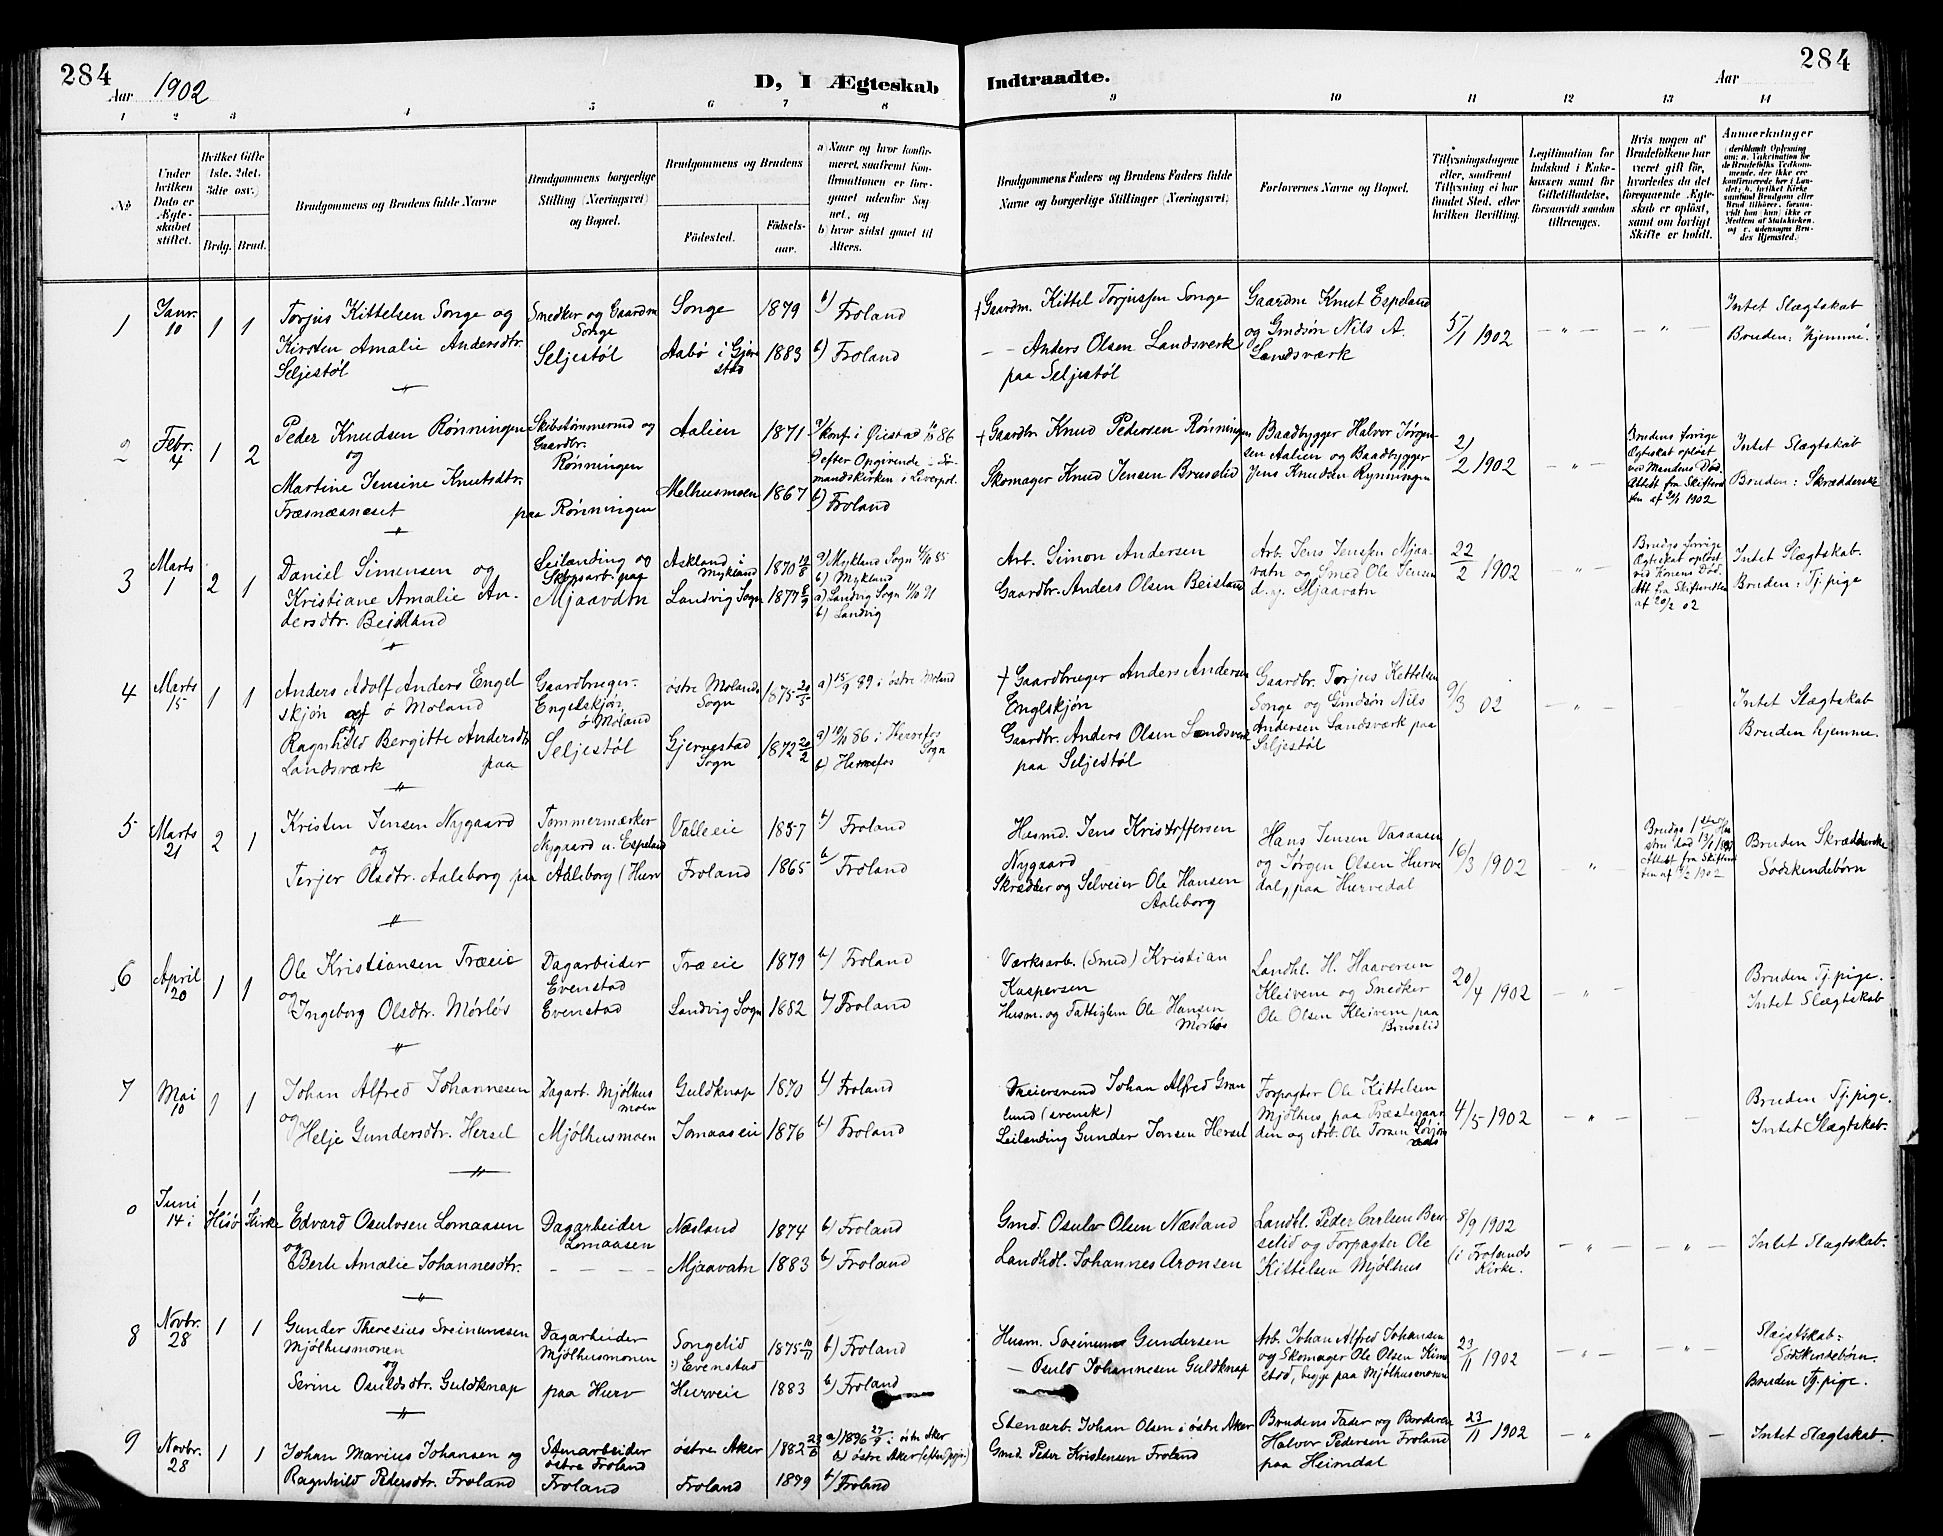 284
Aar 1902
D, I Ægteskab Indtraadte.
Aar
284
1 2 3 4 5 6 7 8 9 10 11 12 13 14
No.
Under hvilken Dato er Ægteskabet stiftet.
Hvilket Gifte (1ste, 2det, 3die osv.)
Brdg. Brud.
Brudgommens og Brudens fulde Navne
Brudgommens borgerlige Stilling (Næringsvei) og Bopæl.
Brudgommens og Brudens
Fødested.
Fødselsaar.
a) Naar og hvor konfirmeret, saafremt Konfirmationen er foregaaet udenfor Sognet, og
b) hvor sidst gaaet til Alters.
Brudgommens Faders og Brudens Faders fulde Navne og borgerlige Stillinger (Næringsvei).
Forlovernes Navne og Bopæl.
Tillysningsdagene eller, saafremt Tillysning ei har fundet Sted, efter hvilken Bevilling.
Legitimation for Indskud i Enkekassen samt for Giftetilladelse, forsaavidt saadan tiltrænges.
Hvis nogen af Brudefolkene har været gift før, hvorledes da det foregaaende Ægteskab er opløst, samt om lovligt Skifte er holdt.
Anmerkninger (deriblandt Oplysning om: a. Vakcination for de Brudefolks Vedkommende, der ikke ere konfirmerede her i Landet; b. hvilket Kirkesamfund Brudgom eller Brud tilhører, forsaavidt han (hun) ikke er Medlem af Statskirken, og c. udensogns Brudes Hjemsted.)
1 Janr. 10 1 1
Torjus Kittelsen Songe og
Kirsten Amalie Andersdtr.
Seljestøl
Smedker og Gaardm
Songe
Seljestøl
Songe 1879 b) Froland
Aabø i Gjerestad 1883 b) Froland
† Gaardm. Kittel Torjussen Songe
— — Anders Olsen Landsverk
paa Seljestøl
Gaardm Knut Espeland
og Gmdsøn Nils A.
Landsværk
5/1 1902
— " — — " —
Intet Slægtskab
Bruden: "hjemme".
2 Febr. 4 1 2
Peder Knudsen Rønningen
og
Martine Jensine Knutsdtr.
Træsnæsneset paa Rønningen
Skibstømmermd og
Gaardbr.
Rønningen
Aalien 1871
Melhusmoen 1867
konf. i Øiestad 86
efter Opgivende i Sømandskirken i Liverpol.
b) Froland
† Gaardbr. Knud Pedersen Rønningen
Skomager Knud Jensen Bruselid
Baadbygger Halvor Jørgensen Aalien og Baadbygger
Jens Knudsen Rynningen
2/2 1902
— " —
Brudens forrige
Ægteskab opløst
ved Mandens Død.
Attest fra Skifteretten af 1902
Intet Slægtskab
Bruden: Skrædderske
3 Marts 1 2 1
Daniel Simensen og
Kristiane Amalie Andersdtr. Beisland
Leilænding og
Skogsarb. paa
Mjaavatn
Askland i Mykland 1870
Landvig Sogn 1877
a) Mykland Sogn 85
b) Mykland
a) Landvig Sogn 91
b) Landvig
Arb. Simon Andersen
Gaardbr. Anders Olsen Beisland
Arb. Jens Jensen Mjaavatn og Smed Ole Jensen
Mjaavatn
22/2 1902
— " —
Brudgs forrige
Ægteskab opløst
ved Konens Død.
Att fra Skifteretten
af 20/2 02
Intet Slægtskab.
Bruden: Tj. pige
4 Marts 15 1 1
Anders Adolf Anders Engelskjøn af ø Moland
og
Ragnhild Bergitte Andersdtr
Landsværk paa
Gaardbruger
Engelskjøn
ø Moland
Seljestøl
østre Molands Sogn 1875 20/5
Gjerrestad Sogn 1872 20/2
a) 15/9 89 i østre Moland
a) 86 i Herrefos Sogn
b) Herrefos
† Gaardbruger Anders Andersen
Englskjøn
Gaardbr. Anders Olsen Landsverk
paa Seljestøl
Gaardbr. Torjus Kittelsen
Songe og Gmdsøn Nils
Andersen Landsværk paa
Seljestøl
9/3 02
— " — — " —
Intet Slægtskab
Bruden hjemme.
5 Marts 21 2 1
Kristen Jensen Nygaard
og
Terjer Olsdtr. Aaleborg paa
Tømmermærker
Nygaard u. Espeland
Aaleborg (Hurv
Valleeie 1857 b) Froland
Froland 1865 b) Froland
Husmd. Jens Kristoffersen
Nygaard
Skredder og Selveier Ole Hansen
Aaleborg
Hans Jensen Vasaasen
og Jørgen Olsen Hurvedal, paa Hurvedal
16/3 1902
"
Brudgs 1ste Hustru død
Attest fra Skifteretten af 1902
Bruden Skrædderske
Sødskendebørn
6 April 20 1 1
Ole Kristiansen Træeie
og
Ingeborg Olsdtr. Mørløs
Dagarbeider
Evenstad
Evenstad
Træeie 1879 b) Froland
Landvig Sogn 1882 b) Froland
Værksarb. (Smed) Kristian
Kaspersen
Husm. og Fattiglem Ole Hansen
Mørløs
Landhl. H. Haaversen
Kleivene og Smedker
Ole Olsen Kleivene paa
Bruselid
20/4 1902
— " — — " —
Bruden Tj. pige.
Intet Slægtskab
7 Mai 10 1 1
Johan Alfred Johannesen
og
Helje Gundersdtr. Hersel
Dagarb. Mjølhusmoen
Mjølhusmoen
Guldknap 1870 b) Froland
Lomaaseie 1876 b) Froland
Dreiersvend Johan Alfred Granlund (svensk)
Leilænding Gunder Jonsen Hersel
Forpagter Ole Kittelsen
Mjølhus, paa Præstegaarden og Arb. Ole Torsen
4/5 1902
— " — — " —
Bruden Tj. pige.
Intet Slægtskab.
0 Juni 14 i 1 1
Hisø Kirke
Edvard Osulvsen Lomaasen
og
Berte Amalie Johannesdtr.
Dagarbeider
Lomaasen
— — —
Næsland 1874 b) Froland
Mjaavatn 1883 b) Froland
Gmd. Osulv Olsen Næsland
Landhdl. Johannes Aronsen
Landhl. Peder Carlsen Bruselid og Forpagter Ole
Kittelsen Mjølhus
8/9 1902
(i Frolands
Kirke.
— " — — " —
Intet Slægtskab.
8 Novbr. 28 1 1
Gunder Theresius Sveinunsen
Mjølhusmonen
og
Serine Osuldsdtr. Guldknap
Dagarbeider
Mjølhusmonen
paa Hurv
Songelid
Evenstad 1875 10/11 b) Froland
Hurveie 1883 b) Froland
Husm. Sveinung Gundersen
— Osuld Johannesen Guldknap
Arb. Johan Alfred Johansen
og Skomager Ole Olsen
begge paa Mjølhusmonen
23/11 1902
— " — — " —
Slægtskab:
Sødskendebørn.
Bruden Tj. pige.
9 Novbr. 28 1 1
Johan Marius Johansen og
Ragnhild Pedersdtr. Froland
Stenarbeider
østre Froland
Froland
østre Aker 1882
Froland 1879
a) 1896 27/9 i østre Aker
b) østre Aker (efter Opgiv.)
b) Froland
Stenarb. Johan Olsen i østre Aker
Gmd. Peder Kristensen Froland
Brudens Fader og Broderen
Halvor Pedersen Froland
paa Heimdal
23/11 1902
— "
Intet Slægtskab.